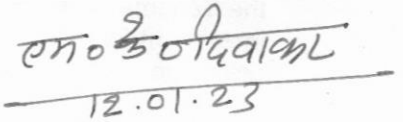 एम० के० दिवाकर
12.01.23